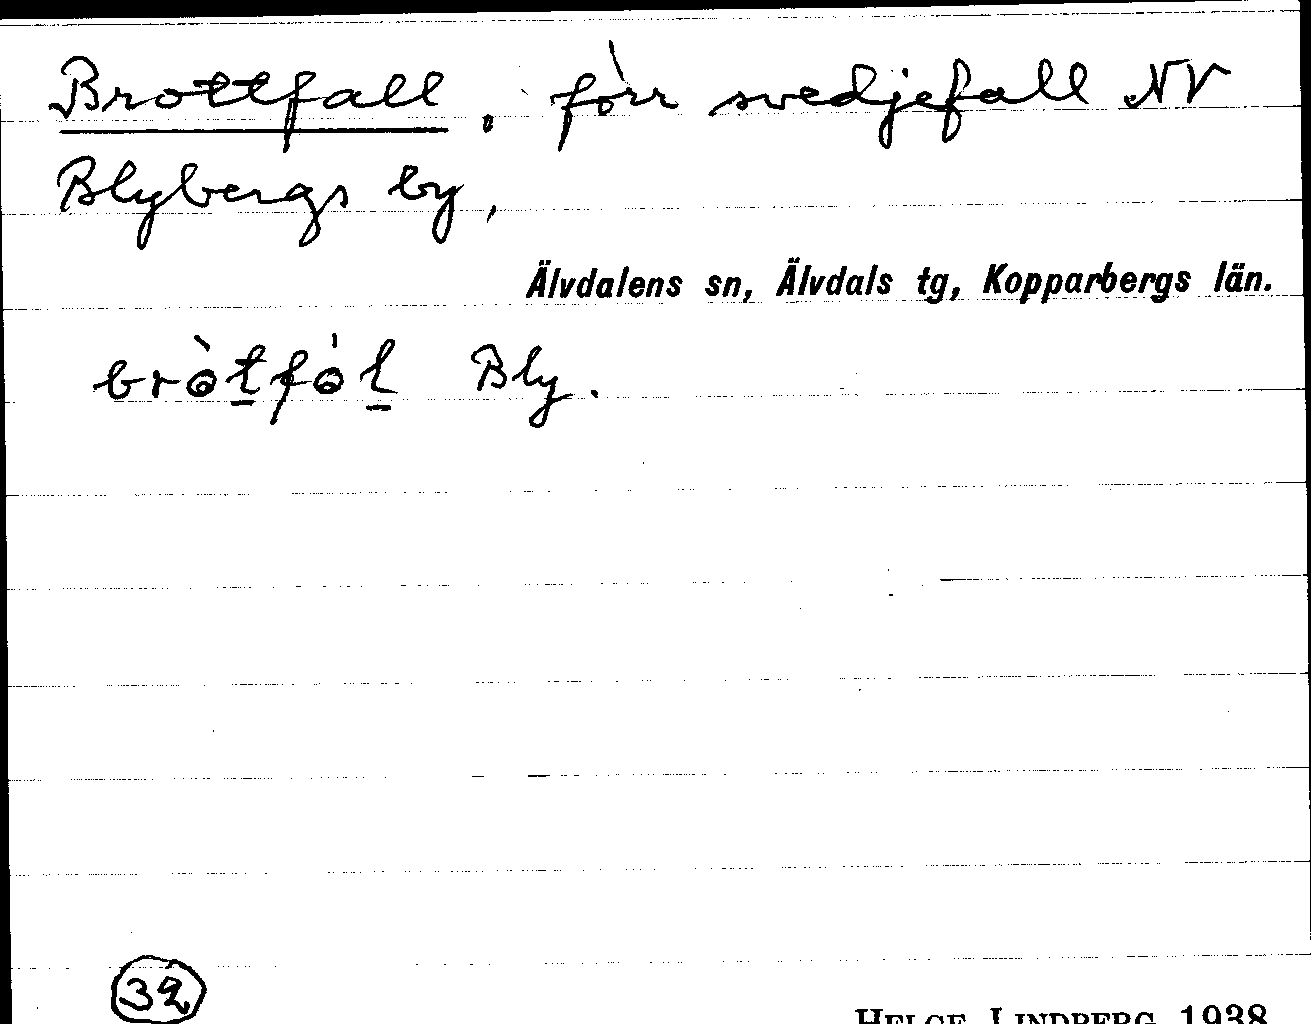 Brottfall, förr svedjefall NV
Blybergs by,
Älvdalens sn, Älvdals tg, Kopparbergs län.
bròt̠fót̠ Bly.
32
HELGE LINDBERG 1938